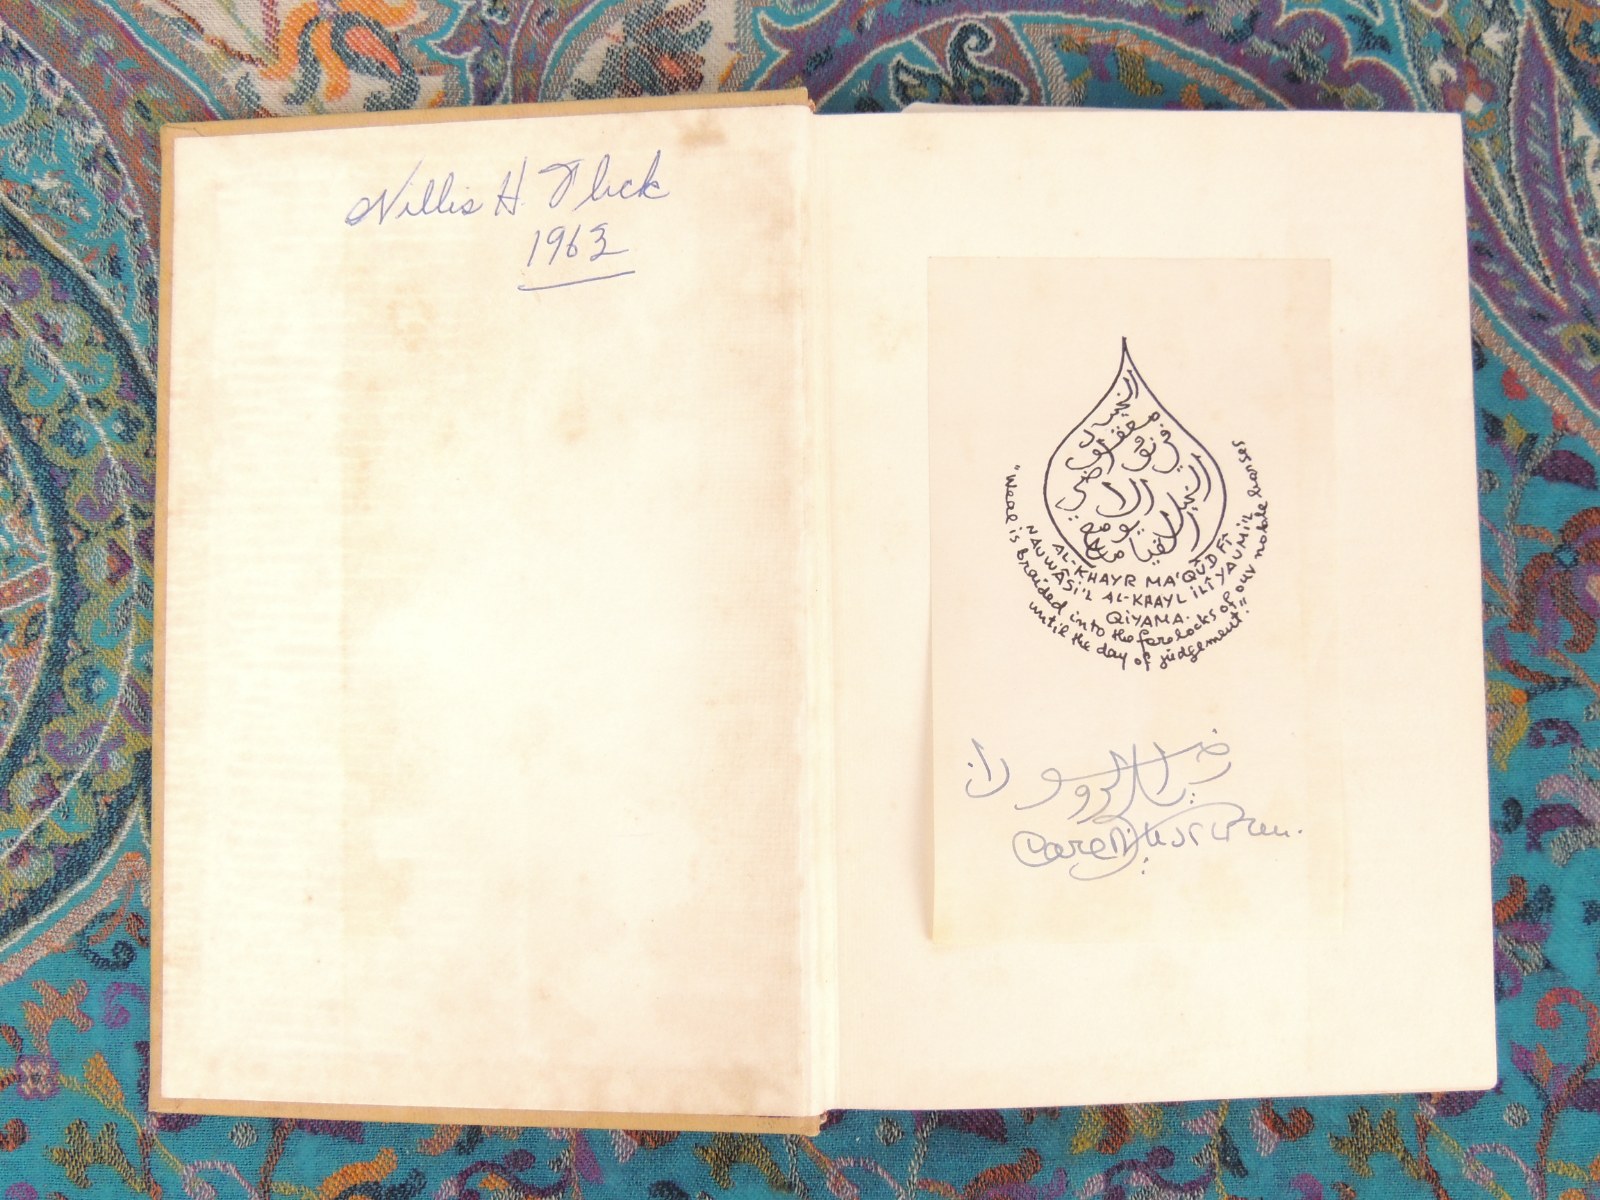 Willis H Flick
1963
الخير
معقود
في نواصي
الخيل الى
يوم
القيامة
AL-KHAYR MA'QÛD FÎ
NAUWÂSI'L AL-KHAYL ILÎ YAUMI'L
QIYAMA.
"Weal is braided into the forelocks of our noble horses
until the day of judgement."